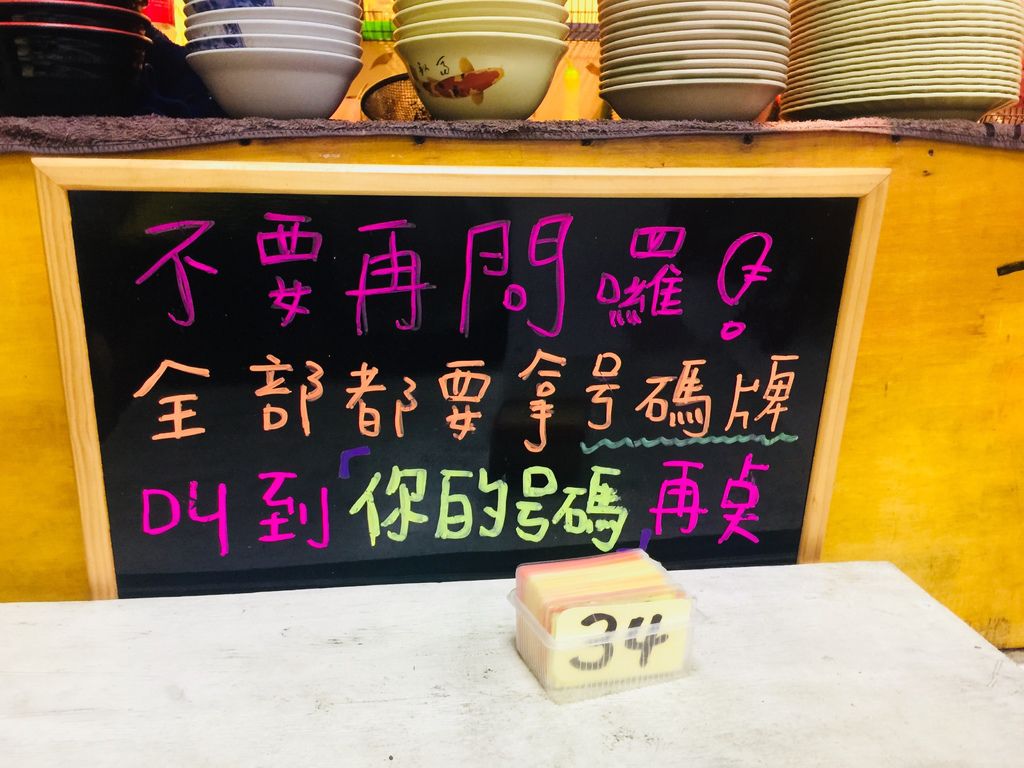 不要再問囉!
全部都要拿号碼牌
叫到「你的号碼」再点
34